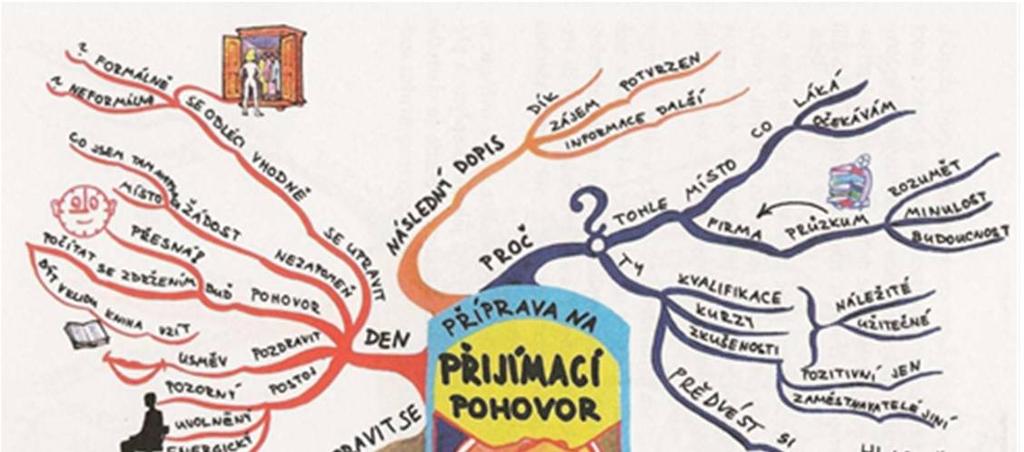 PŘÍPRAVA NA
PŘIJÍMACÍ
POHOVOR
DEN
SE UPRAVIT
SE ODLÉCI VHODNĚ
? FORMÁLNĚ
? NEFORMÁLNĚ
NEZAPOMEŇ
ŽÁDOST
CO JSEM TAM
MÍSTO
POHOVOR
BUĎ
PŘESNÁ?
POČÍTAT SE ZDRŽENÍM
BÝT V KLIDU
KNIHA VZÍT
POZDRAVIT
ÚSMĚV
POSTOJ
POZORNÝ
UVOLNĚNÝ
ENERGICKÝ
RAVIT SE
NÁSLEDNÝ DOPIS
DÍK
ZÁJEM POTVRZEN
INFORMACE DALŠÍ
PROČ
?
TOHLE
MÍSTO
CO
LÁKÁ
OČEKÁVÁM
FIRMA
PRŮZKUM
ROZUMĚT
MINULOST
BUDOUCNOST
TY
KVALIFIKACE
KURZY
ZKUŠENOSTI
NÁLEŽITÉ
UŽITEČNÉ
POZITIVNÍ JEN
ZAMĚSTNAVATELÉ JINÍ
PŘEDVÉST SI